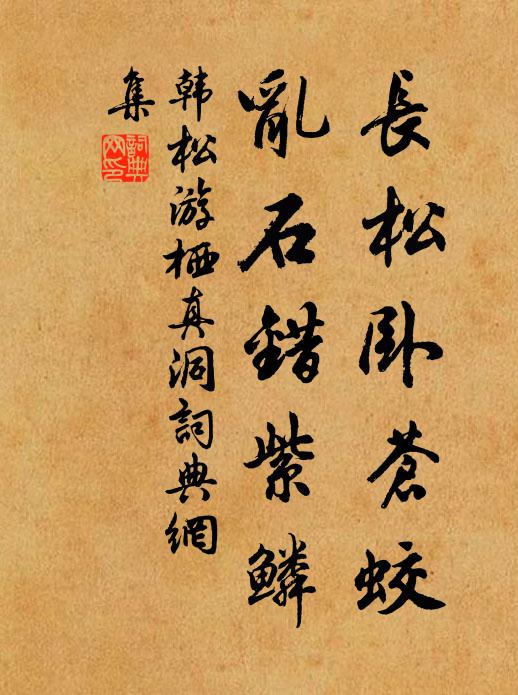 長松卧蒼蛟
亂石錯紫鱗
韩松游栖真洞詞典網
集
詞典
网印